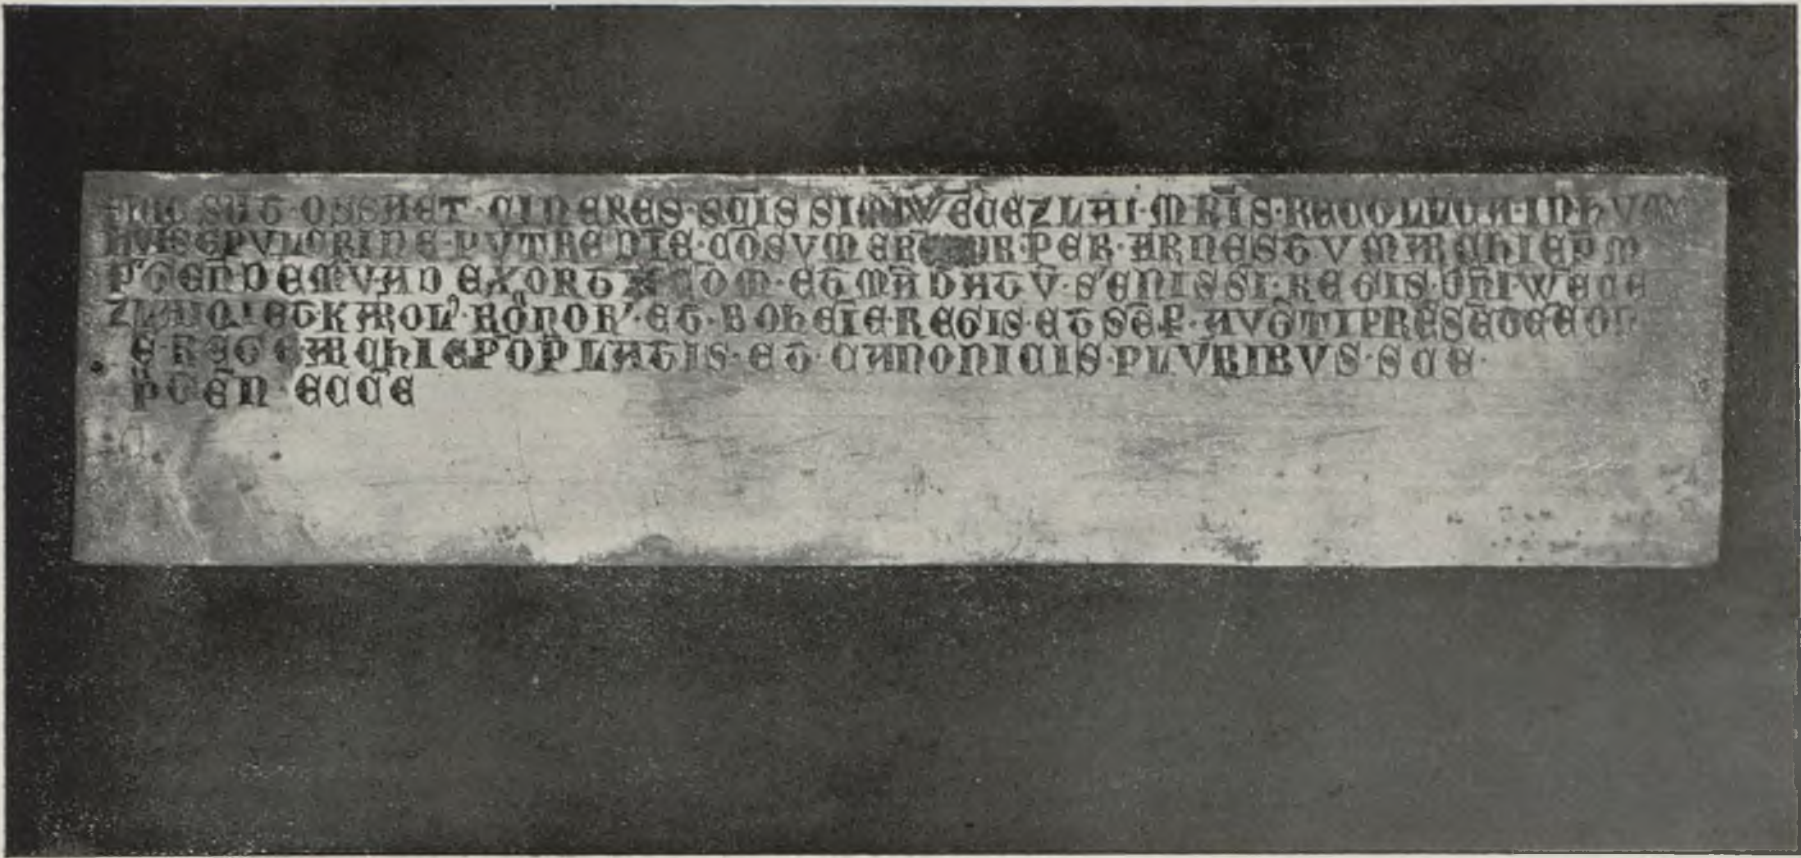 HIC SŪT OSSA ET · CINERES · SCĪSSIMI WĒCEZLAI · MRĪS · RECOLLECTA IN HUMO
HUI SEPVLCRI NE · PVTREDĪE · CŌSVMERĒTUR PER · ARNESTVM ARCHIEPM
PGEN DEMVAD EXORT COM · ET MĀDATV̄ · SENISSI · REGIS · DN̄I · WĒCE
ZLAI Q I ET KAROL' · ROĀNOR' · ET · BOHEIE · REGIS · ET SĒP · AVḠTI PRESĒTE EOD
Ē · REGE ARCHIEPO P̄LATIS · ET · CANONICIS · PLVRIBVS · SCE ·
PGĒN · ECCE